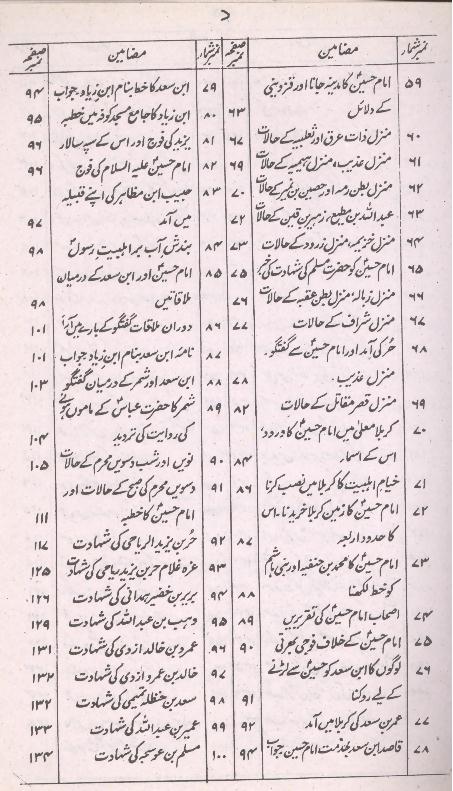 ۷
نمبر شمار مضامین صفحہ نمبر
۵۹ امام حسینؑ کا مدینہ جانا اور قزوینی
کے دلائل ۶۳
۶۰ منزل ذات عرق اور ثعلبیہ کے حالات ۶۷
۶۱ منزل عذیب، منزل ہیمیہ کے حالات ۶۹
۶۲ منزل بطن رمہ اور حصین بن نمیر کے حالات ۷۰
۶۳ عبداللہ بن مطیع، زہیر بن قین کے حالات ۷۲
۶۴ منزل خزیمہ، منزل زرود کے حالات ۷۳
۶۵ امام حسینؑ کو حضرت مسلم کی شہادت کی خبر ۷۵
۶۶ منزل زبالہ، منزل بطن عقبہ کے حالات ۷۶
۶۷ منزل شراف کے حالات ۷۷
۶۸ حُر کی آمد اور امام حسینؑ سے گفتگو۔
منزل عذیب۔ ۷۸
۶۹ منزل قصر مقاتل کے حالات ۸۲
۷۰ کربلا معلیٰ میں امام حسینؑ کا ورود،
اس کے اسماء ۸۴
۷۱ خیام اہلبیت کا کربلا میں نصب کرنا ۸۶
۷۲ امام حسینؑ کا زمین کربلا خریدنا۔ اس
کا حدود اربعہ ۸۷
۷۳ امام حسینؑ کا محمد بن حنفیہ اور بنی ہاشم
کو خط لکھنا ۸۸
۷۴ اصحاب امام حسینؑ کی تقریریں ۸۹
۷۵ امام حسینؑ کے خلاف فوجی بھرتی ۹۰
۷۶ لوگوں کا ابن سعد کو حسینؑ سے لڑنے
کے لیے روکنا ۹۱
۷۷ عمر بن سعد کی کربلا میں آمد ۹۲
۷۸ قاصد ابن سعد بخدمت امام حسینؑ جواب ۹۴
نمبر شمار مضامین صفحہ نمبر
۷۹ ابن سعد کا خط بنام ابن زیاد و جواب ۹۴
۸۰ ابن زیاد کا جامع مسجد کوفہ میں خطبہ ۹۵
۸۱ یزید کی فوج اور اس کے سپہ سالار ۹۶
۸۲ امام حسینؑ علیہ السلام کی فوج ۹۶
۸۳ حبیب ابن مظاہر کی اپنے قبیلہ
میں آمد ۹۷
۸۴ بندش آب بر اہلبیت رسولؐ ۹۸
۸۵ امام حسینؑ اور ابن سعد کے درمیان
ملاقاتیں ۹۸
۸۶ دوران ملاقات گفتگو کے بارے میں آراء ۱۰۱
۸۷ نامہ ابن سعد بنام ابن زیاد جواب ۱۰۱
۸۸ ابن سعد اور شمر کے درمیان گفتگو ۱۰۳
۸۹ شمر کا حضرت عباسؑ کے ماموں ہونے
کی روایت کی تردید ۱۰۴
۹۰ نویں اور شب دسویں محرم کے حالات ۱۰۵
۹۱ دسویں محرم کی صبح کے حالات اور
امام حسینؑ کا خطبہ ۱۱۱
۹۲ حُر بن یزید الریاحی کی شہادت ۱۱۷
۹۳ عزہ غلام حر بن یزید ریاحی کی شہادت ۱۲۵
۹۴ بریر بن خضیر ہمدانی کی شہادت ۱۲۶
۹۵ وہب بن عبداللہ کی شہادت ۱۲۹
۹۶ عمرو بن خالد ازدی کی شہادت ۱۳۱
۹۷ خالد بن عمرو ازدی کی شہادت ۱۳۲
۹۸ سعد بن حنظلہ تمیمی کی شہادت ۱۳۲
۹۹ عمیر بن عبداللہ کی شہادت ۱۳۳
۱۰۰ مسلم بن عوسجہ کی شہادت ۱۳۴